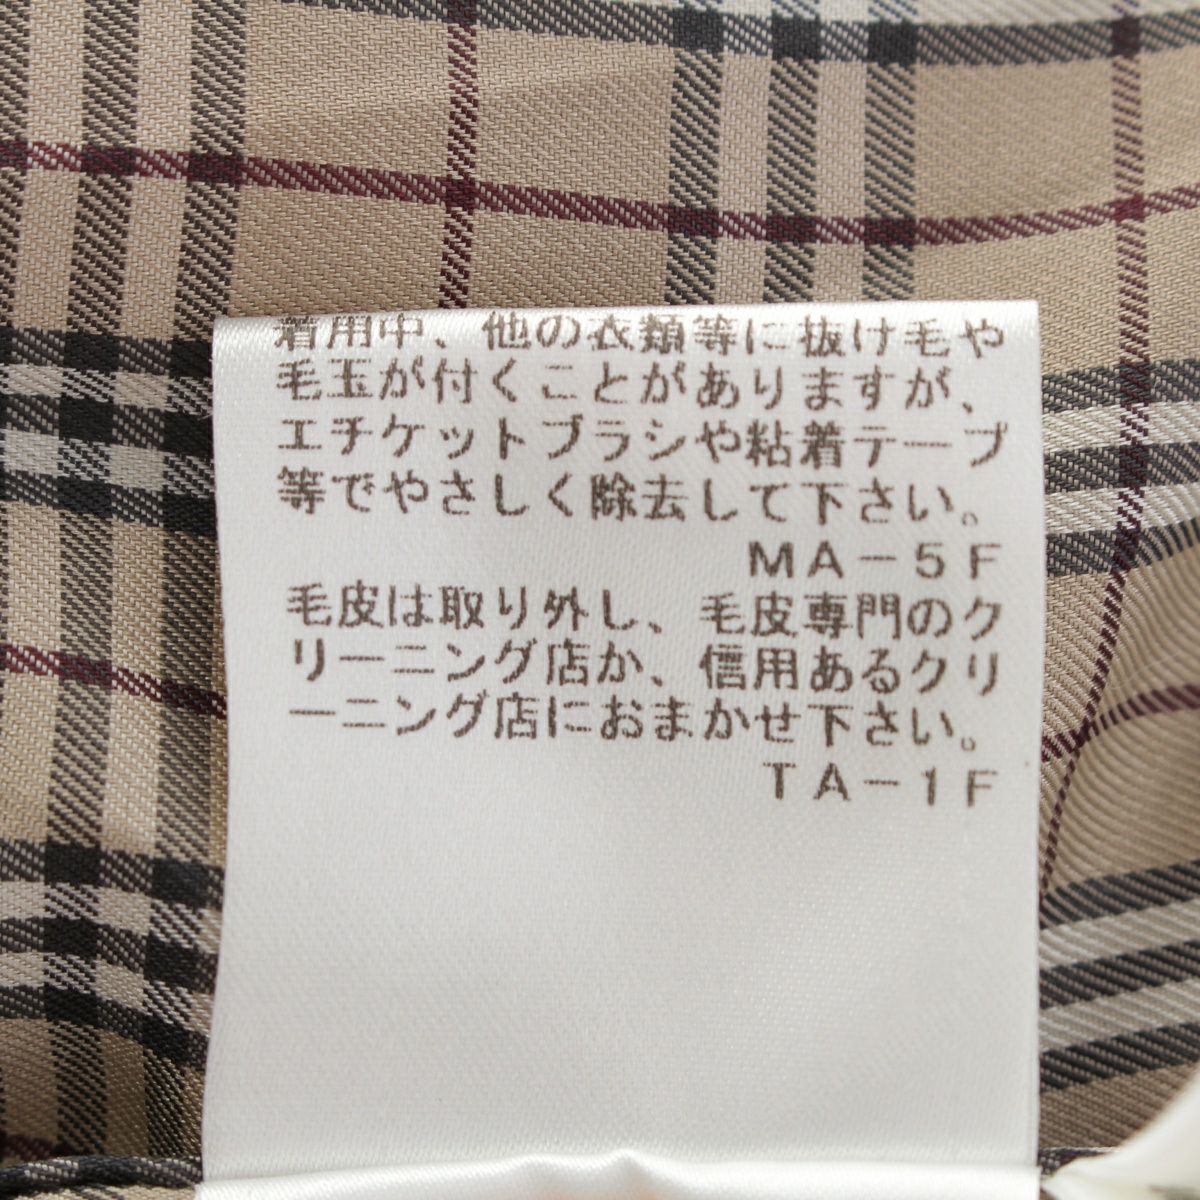 着用中、他の衣類等に抜け毛や
毛玉が付くことがありますが、
エチケットブラシや粘着テープ
等でやさしく除去して下さい。
MA－5F
毛皮は取り外し、毛皮専門のク
リーニング店か、信用あるクリ
ーニング店におまかせ下さい。
TA－1F